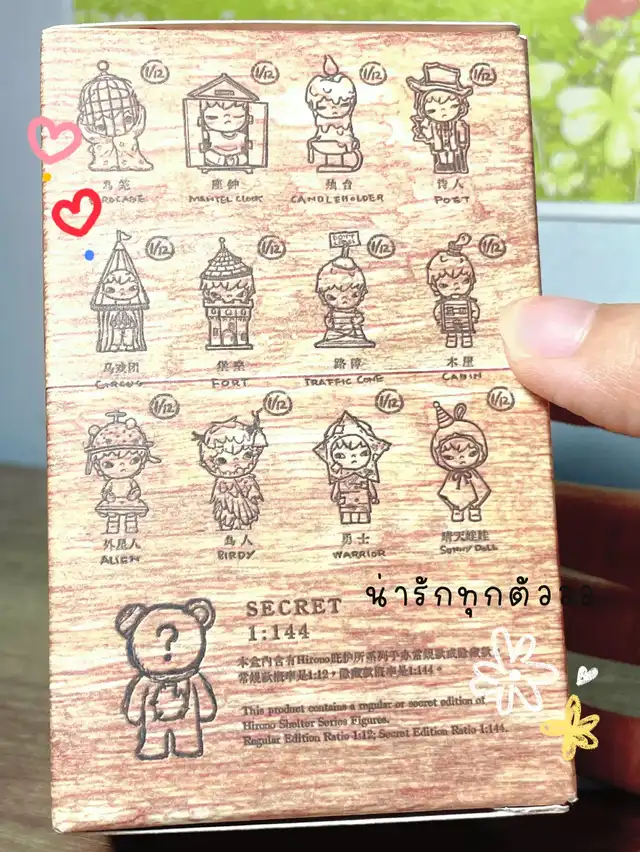 1/12 1/12 1/12 1/12
鸟笼 座钟 烛台 诗人
BIRDCAGE MANTEL CLOCK CANDLEHOLDER POET
1/12 1/12 1/12 1/12
马戏团 堡垒 路障 木屋
CIRCUS FORT TRAFFIC CONE CABIN
1/12 1/12 1/12 1/12
外星人 鸟人 勇士 晴天娃娃
ALIEN BIRDY WARRIOR SUNNY DOLL
น่ารักทุกตัวลย
SECRET
1:144
?
本盒内含有Hirono庇护所系列手办常规款或隐藏款,
常规款概率是1:12,隐藏款概率是1:144。
This product contains a regular or secret edition of
Hirono Shelter Series Figures.
Regular Edition Ratio 1:12; Secret Edition Ratio 1:144.